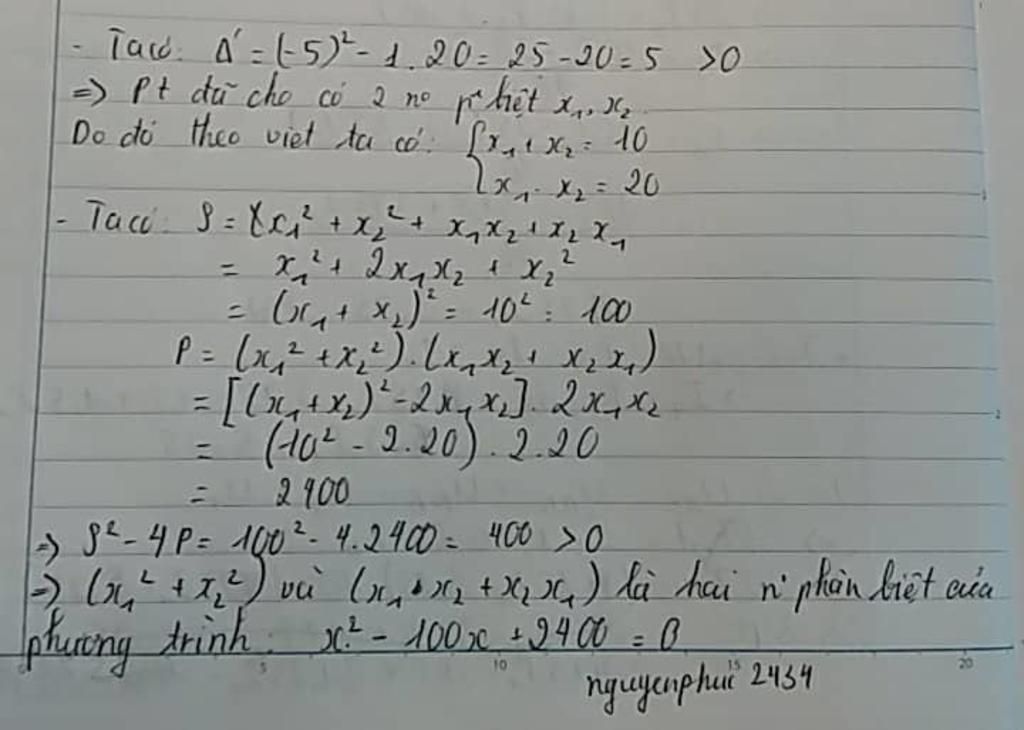 - Ta có: Δ' = (-5)² - 1.20 = 25 - 20 = 5 > 0
=> Pt đã cho có 2 no p biệt x₁, x₂
Do đó theo viet ta có: { x₁ + x₂ = 10
x₁ . x₂ = 20
- Ta có: S = x₁² + x₂² + x₁x₂ + x₂x₁
= x₁² + 2x₁x₂ + x₂²
= (x₁ + x₂)² = 10² = 100
P = (x₁² + x₂²).(x₁x₂ + x₂x₁)
= [(x₁ + x₂)² - 2x₁x₂]. 2x₁x₂
= (10² - 2.20).2.20
= 2400
=> S² - 4P = 100² - 4.2400 = 400 > 0
=> (x₁² + x₂²) và (x₁.x₂ + x₂x₁) là hai n° phân biệt của
phương trình: x² - 100x + 2400 = 0
5 10 15 20
nguyenphuc 2434